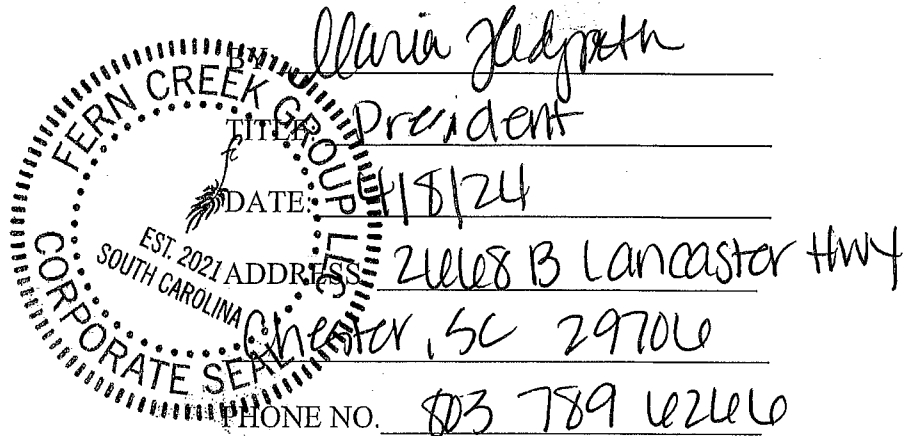 BY
TITLE: President
DATE: 4/8/24
ADDRESS 2668 B Lancaster Hwy
Chester, SC 29706
PHONE NO. 803 789 6266
FERN CREEK GROUP LLC
EST. 2021
SOUTH CAROLINA
CORPORATE SEAL